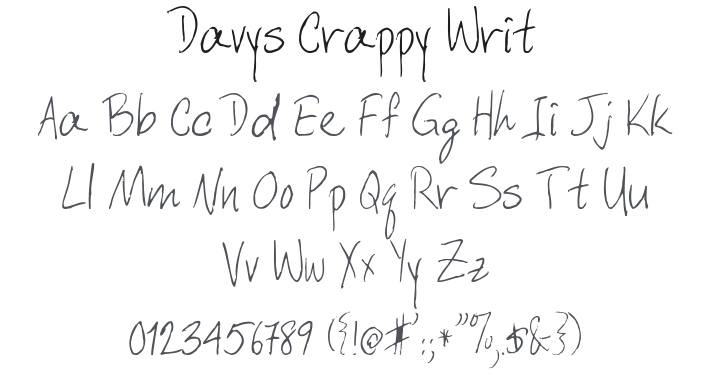 Davys Crappy Writ
Aa Bb Cc Dd Ee Ff Gg Hh Ii Jj Kk
Ll Mm Nn Oo Pp Qq Rr Ss Tt Uu
Vv Ww Xx Yy Zz
0123456789 ({!@#':;*"%,.$&})